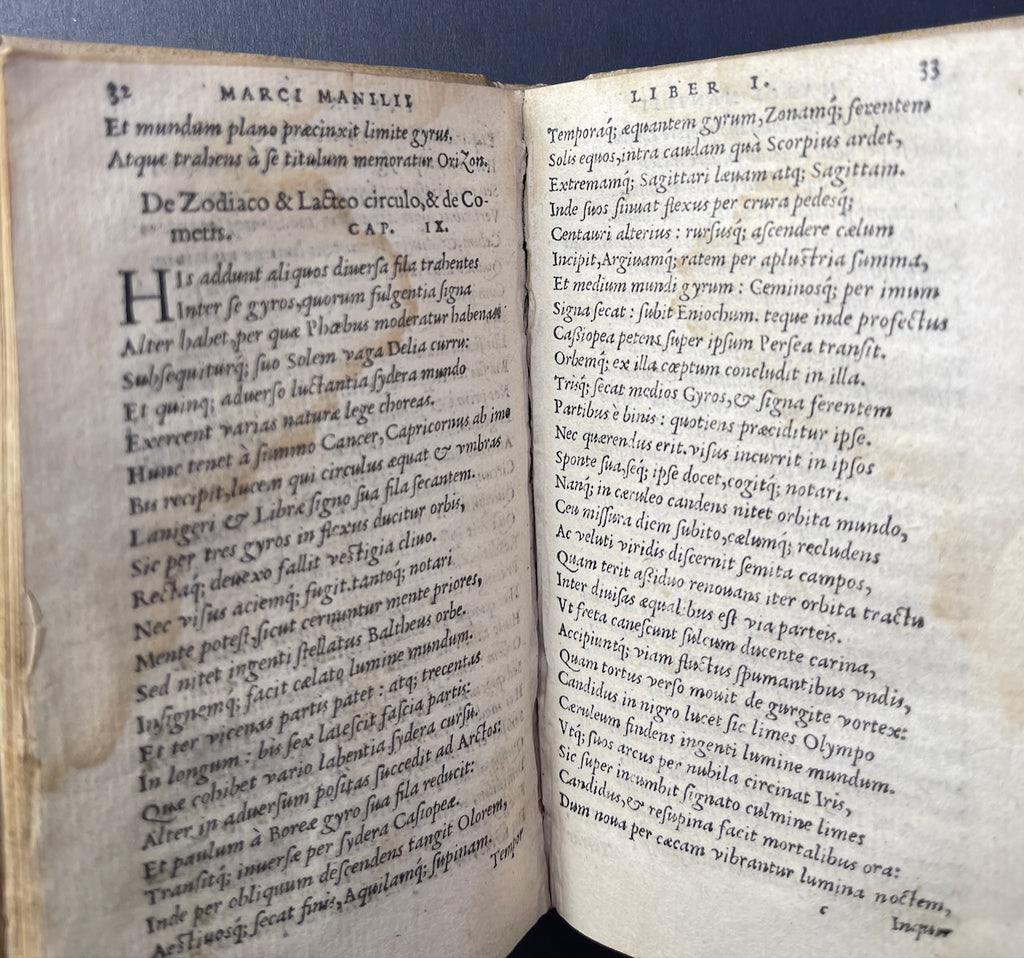 32 MARCI MANILII
Et mundum plano præcinxit limite gyrus,
Atque trahens à se titulum memoratur OriZon.
De Zodiaco & Lacteo circulo, & de Co-
metis. CAP. IX.
HIs addunt aliquos diuersa fila trahentes
Inter se gyros, quorum fulgentia signa
Alter habet, per quæ Phœbus moderatur habenas
Subsequiturq́; suo Solem vaga Delia curru:
Et quinq; aduerso luctantia sydera mundo
Exercent varias naturæ lege choreas.
Hunc tenet à summo Cancer, Capricornus ab imo
Bis recipit, lucem qui circulus æquat & vmbras
Lanigeri & Libræ signo sua fila secantem.
Sic per tres gyros in flexus ducitur orbis,
Rectaq́; deuexo fallit vestigia cliuo.
Nec visus aciemq́; fugit. tantoq́; notari
Mente potest, sicut cernuntur mente priores,
Sed nitet ingenti stellatus Baltheus orbe.
Insignemq́; facit cælato lumine mundum.
Et ter vicenas partis patet: atq; trecentas
In longum: bis sex latescit fascia partis:
Quæ cohibet vario labentia sydera cursu.
Alter in aduersum positas succedit ad Arctos:
Et paulum à Boreæ gyro sua fila reducit:
Transitq́; inuersæ per sydera Casiopeæ.
Inde per obliquum descendens tangit Olorem,
Aestiuosq́; secat finis, Aquilamq́; supinam.
Tempor
LIBER I. 33
Temporaq́; æquantem gyrum, Zonamq́; ferentem
Solis equos, intra caudam quà Scorpius ardet,
Extremamq́; Sagittari læuam atq; Sagittam.
Inde suos sinuat flexus per crura pedesq́;
Centauri alterius: rursusq́; ascendere cælum
Incipit, Argiuamq́; ratem per aplustria summa,
Et medium mundi gyrum: Geminosq́; per imum
Signa secat: subit Eniochum. teque inde profectus
Cassiopea petens super ipsum Persea transit.
Orbemq́; ex illa cœptum concludit in illa.
Trisq́; secat medios Gyros, & signa ferentem
Partibus è binis: quotiens præciditur ipse.
Nec quærendus erit. visus incurrit in ipsos
Sponte sua, seq́; ipse docet, cogitq́; notari.
Nanq́; in cæruleo candens nitet orbita mundo,
Ceu missura diem subito, cælumq́; recludens
Ac veluti viridis discernit semita campos,
Quam terit assiduo renouans iter orbita tractu
Inter diuisas æqualibus est via parteis.
Vt freta canescunt sulcum ducente carina,
Accipiuntq́; viam fluctus spumantibus vndis,
Quam tortus verso mouit de gurgite vortex:
Candidus in nigro lucet sic limes Olympo
Cæruleum findens ingenti lumine mundum.
Vtq́; suos arcus per nubila circinat Iris,
Sic super incumbit signato culmine limes
Candidus, & resupina facit mortalibus ora:
Dum noua per cæcam vibrantur lumina noctem,
c